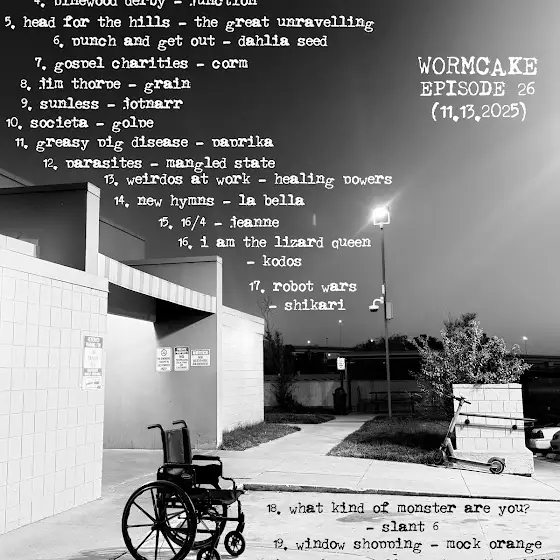 4. pinewood derby - junction
5. head for the hills - the great unravelling
6. punch and get out - dahlia seed
7. gospel charities - corm
8. jim thorpe - grain
9. sunless - jotnarr
10. societa - golpe
11. greasy pig disease - paprika
12. parasites - mangled state
13. weirdos at work - healing powers
14. new hymns - la bella
15. 16/4 - jeanne
16. i am the lizard queen
- kodos
17. robot wars
- shikari
WORMCAKE
EPISODE 26
(11.13.2025)
18. what kind of monster are you?
- slant 6
19. window shopping - mock orange